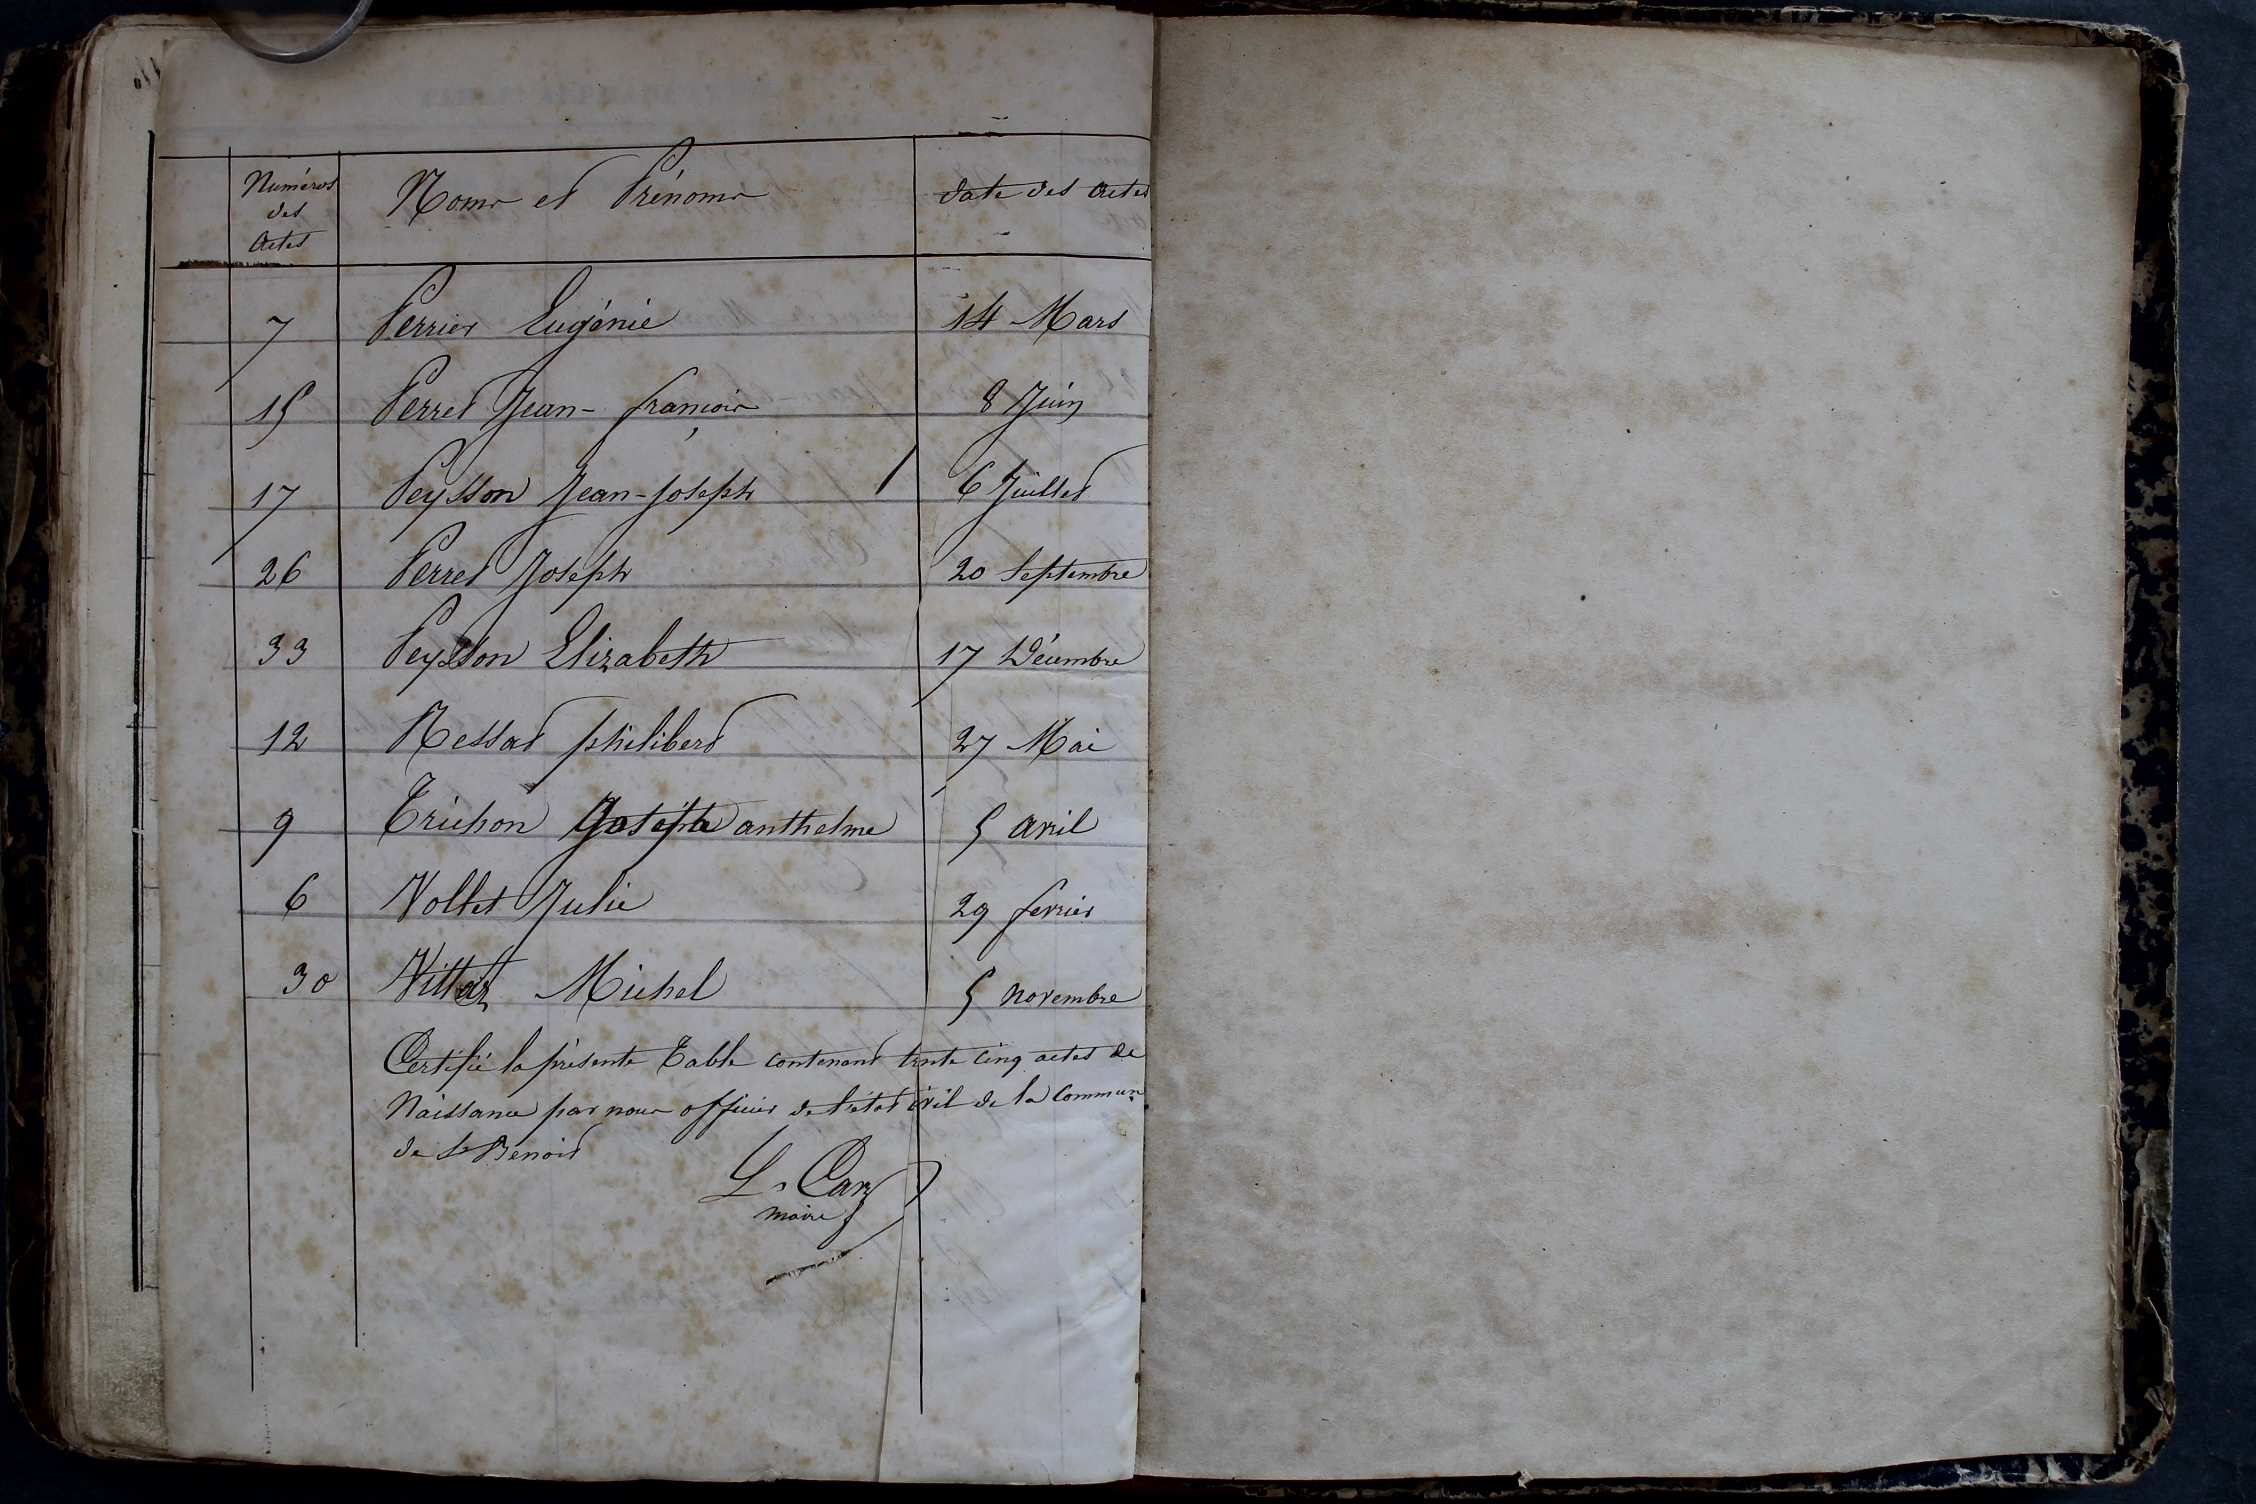 Numéros des Actes Noms et Prénoms date des actes
7 Perrier Eugénie 14 Mars
15 Perret Jean-françois 8 Juin
17 Peysson Jean-Joseph 6 Juillet
26 Perret Joseph 20 Septembre
33 Peysson Elizabeth 17 Décembre
12 Ressat philibert 27 Mai
9 Trichon Joseph anthelme 5 avril
6 Vollet Julie 29 fevrier
30 Michel 5 novembre
Certifié la présente Table contenant trente cinq actes de
Naissance par nous officier de l'état civil de la Commune
de St Benoit
maire